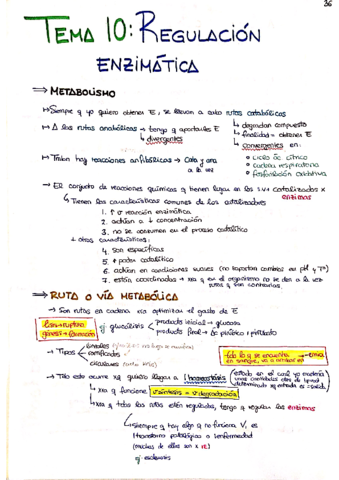 36
TEMA 10: REGULACIÓN
ENZIMÁTICA
⇒ METABOLISMO
↦ Siempre q yo quiero obtener E, se llevan a cabo rutas catabólicas
↳ degradan compuesto
↳ finalidad = obtener E
↳ convergentes en:
º ciclo ác cítrico
º cadena respiratoria
º fosforilación oxidativa
↦ A las rutas anabólicas → tengo q aportarles E
↳ divergentes
↦ Tb hay reacciones anfibólicas → Cata y ana
a la vez
↦ El conjunto de reacciones químicas q tienen lugar en los sv → catalizadas x
enzimas
↳ Tienen las características comunes de los catalizadores
1. ↑ v reacción enzimática
2. actúan a ↓ concentración
3. no se consumen en el proceso catalítico
+ otras características:
4. son específicas
5. ↑ poder catalítico
6. actúan en condiciones suaves (no soportan cambios en pH y Tª)
7. están coordinadas → xa q en el organismo no se den a la vez
rutas q son contrarias.
⇒ RUTA O VÍA METABÓLICA
↦ Son rutas en cadena xa optimizar el gasto de E
lisis → ruptura
génesis → formación
ej glucólisis
producto inicial → glucosa
producto final → ác pirúvico / piruvato
↦ Tipos
lineales
ramificadas
circulares
todo lo q se encuentra → -emia
en sangre, va a terminar en
↦ Todo esto ocurre xq quiero llegar a 1 homeostasis
↳ xa q funcione v síntesis = v degradación
↳ xa q todas las rutas estén reguladas, tengo q regular las enzimas
↳ siempre q hay algo q no funciona V, es
1 trastorno patológico o 1 enfermedad
(muchas de ellas son x E)
ej esclerosis